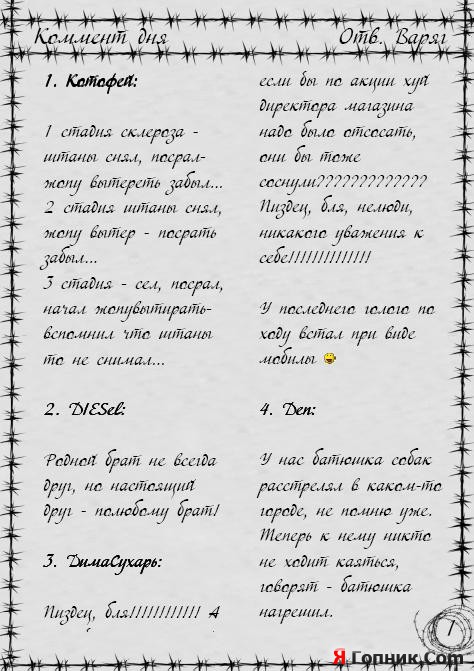 Коммент дня
Отв. Варяг
1. Котофей:
1 стадия склероза -
штаны снял, посрал-
жопу вытереть забыл...
2 стадия штаны снял,
жопу вытер - посрать
забыл...
3 стадия - сел, посрал,
начал жопувытирать-
вспомнил что штаны
то не снимал...
2. DIESel:
Родной брат не всегда
друг, но настоящий
друг - полюбому брат!
3. ДимаСухарь:
Пиздец, бля!!!!!!!!!!!! А
если бы по акции хуй
директора магазина
надо было отсосать,
они бы тоже
соснули?????????????
Пиздец, бля, нелюди,
никакого уважения к
себе!!!!!!!!!!!!!!
У последнего голого по
ходу встал при виде
мобилы
4. Den:
У нас батюшка собак
расстрелял в каком-то
городе, не помню уже.
Теперь к нему никто
не ходит каяться,
говорят - батюшка
нагрешил.
1
ЯГопник.Com